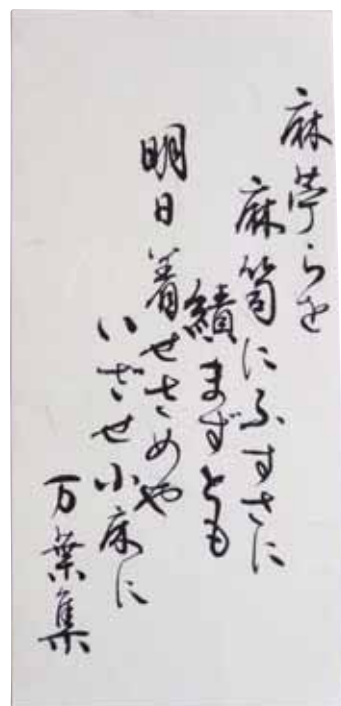 麻苧らを
麻笥にふすさに
績まずとも
明日着せさめや
いざせ小床に
万葉集